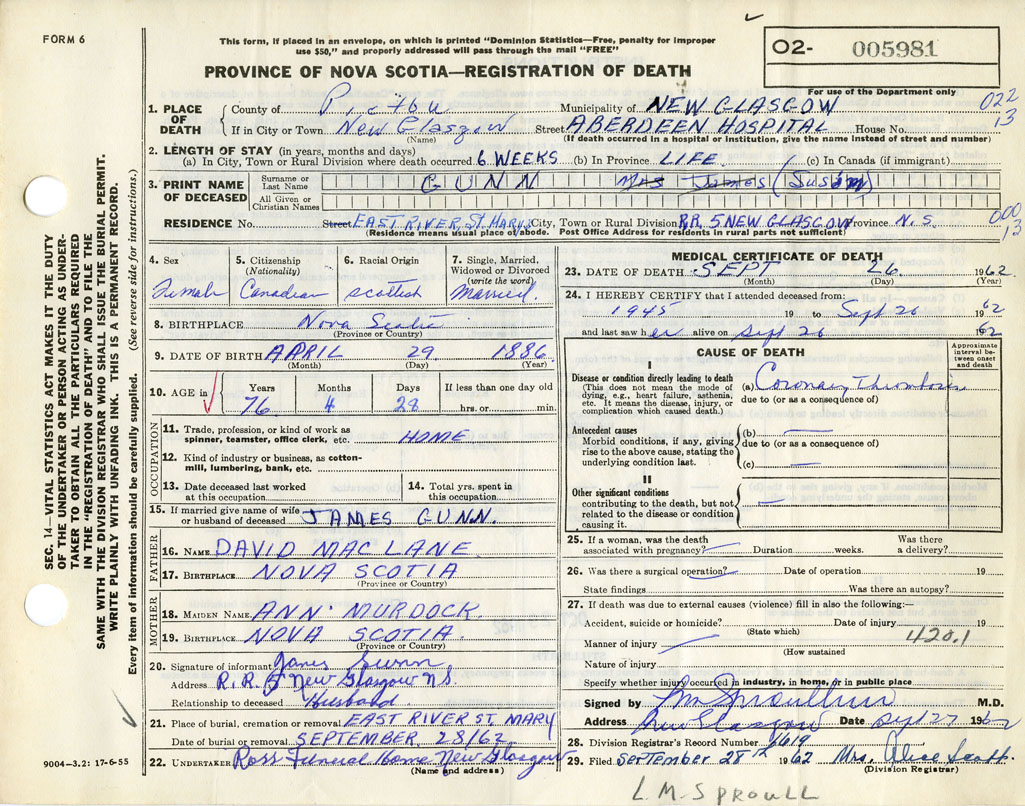 FORM 6
This form, if placed in an envelope, on which is printed "Dominion Statistics—Free, penalty for improper
use $50," and properly addressed will pass through the mail "FREE"
PROVINCE OF NOVA SCOTIA—REGISTRATION OF DEATH
O2- 005981
For use of the Department only
022
13
1. PLACE OF DEATH County of Pictou Municipality of NEW GLASGOW
If in City or Town New Glasgow Street ABERDEEN HOSPITAL House No.
(Name) (If death occurred in a hospital or institution, give the name instead of street and number)
2. LENGTH OF STAY (in years, months and days)
(a) In City, Town or Rural Division where death occurred 6 WEEKS (b) In Province LIFE (c) In Canada (if immigrant)
3. PRINT NAME OF DECEASED Surname or Last Name GUNN Mrs James (Susan)
All Given or Christian Names
RESIDENCE No. Street EAST RIVER, St. MARYS City, Town or Rural Division RR. 5 NEW GLASGOW Province N.S.
(Residence means usual place of abode. Post Office Address for residents in rural parts not sufficient)
000
13
4. Sex 5. Citizenship (Nationality) 6. Racial Origin 7. Single, Married, Widowed or Divorced (write the word)
Female Canadian Scottish Married.
8. BIRTHPLACE Nova Scotia
(Province or Country)
9. DATE OF BIRTH APRIL 29 1886
(Month) (Day) (Year)
10. AGE in Years Months Days If less than one day old
76 4 28 hrs. or min.
OCCUPATION
11. Trade, profession, or kind of work as
spinner, teamster, office clerk, etc. HOME
12. Kind of industry or business, as cotton-
mill, lumbering, bank, etc.
13. Date deceased last worked
at this occupation
14. Total yrs. spent in
this occupation
15. If married give name of wife
or husband of deceased JAMES GUNN.
FATHER
16. NAME DAVID MAC LANE
17. BIRTHPLACE NOVA SCOTIA
(Province or Country)
MOTHER
18. MAIDEN NAME ANN MURDOCK
19. BIRTHPLACE NOVA SCOTIA.
(Province or Country)
20. Signature of informant James Gunn
Address R.R. 5 New Glasgow N.S.
Relationship to deceased Husband
21. Place of burial, cremation or removal EAST RIVER ST. MARY
Date of burial or removal SEPTEMBER 28/62
22. UNDERTAKER Ross Funeral Home New Glasgow
(Name and address)
MEDICAL CERTIFICATE OF DEATH
23. DATE OF DEATH SEPT 26 1962
(Month) (Day) (Year)
24. I HEREBY CERTIFY that I attended deceased from:
1945 19 to Sept 26 1962
and last saw her alive on Sept 26 1962
CAUSE OF DEATH
Approximate interval between onset and death
I
Disease or condition directly leading to death
(This does not mean the mode of
dying, e.g., heart failure, asthenia,
etc. It means the disease, injury, or
complication which caused death.)
(a) Coronary Thrombosis
due to (or as a consequence of)
Antecedent causes
Morbid conditions, if any, giving
rise to the above cause, stating the
underlying condition last.
(b)
due to (or as a consequence of)
(c)
II
Other significant conditions
contributing to the death, but not
related to the disease or condition
causing it.
25. If a woman, was the death
associated with pregnancy? Duration weeks. Was there
a delivery?
26. Was there a surgical operation? Date of operation 19
State findings Was there an autopsy?
27. If death was due to external causes (violence) fill in also the following:—
Accident, suicide or homicide? Date of injury 19
(State which)
420.1
Manner of injury
(How sustained)
Nature of injury
Specify whether injury occurred in industry, in home, or in public place
Signed by LM Sproull M.D.
Address New Glasgow Date Sept 27 1962
28. Division Registrar's Record Number 4619
29. Filed September 28th 1962 Mrs. Alice
(Division Registrar)
L.M. SPROULL
SEC. 14—VITAL STATISTICS ACT MAKES IT THE DUTY
OF THE UNDERTAKER OR PERSON ACTING AS UNDER-
TAKER TO OBTAIN ALL THE PARTICULARS REQUIRED
IN THE "REGISTRATION OF DEATH" AND TO FILE THE
SAME WITH THE DIVISION REGISTRAR WHO SHALL ISSUE THE BURIAL PERMIT.
WRITE PLAINLY WITH UNFADING INK. THIS IS A PERMANENT RECORD.
Every item of information should be carefully supplied. (See reverse side for instructions.)
9004-3.2: 17-6-55